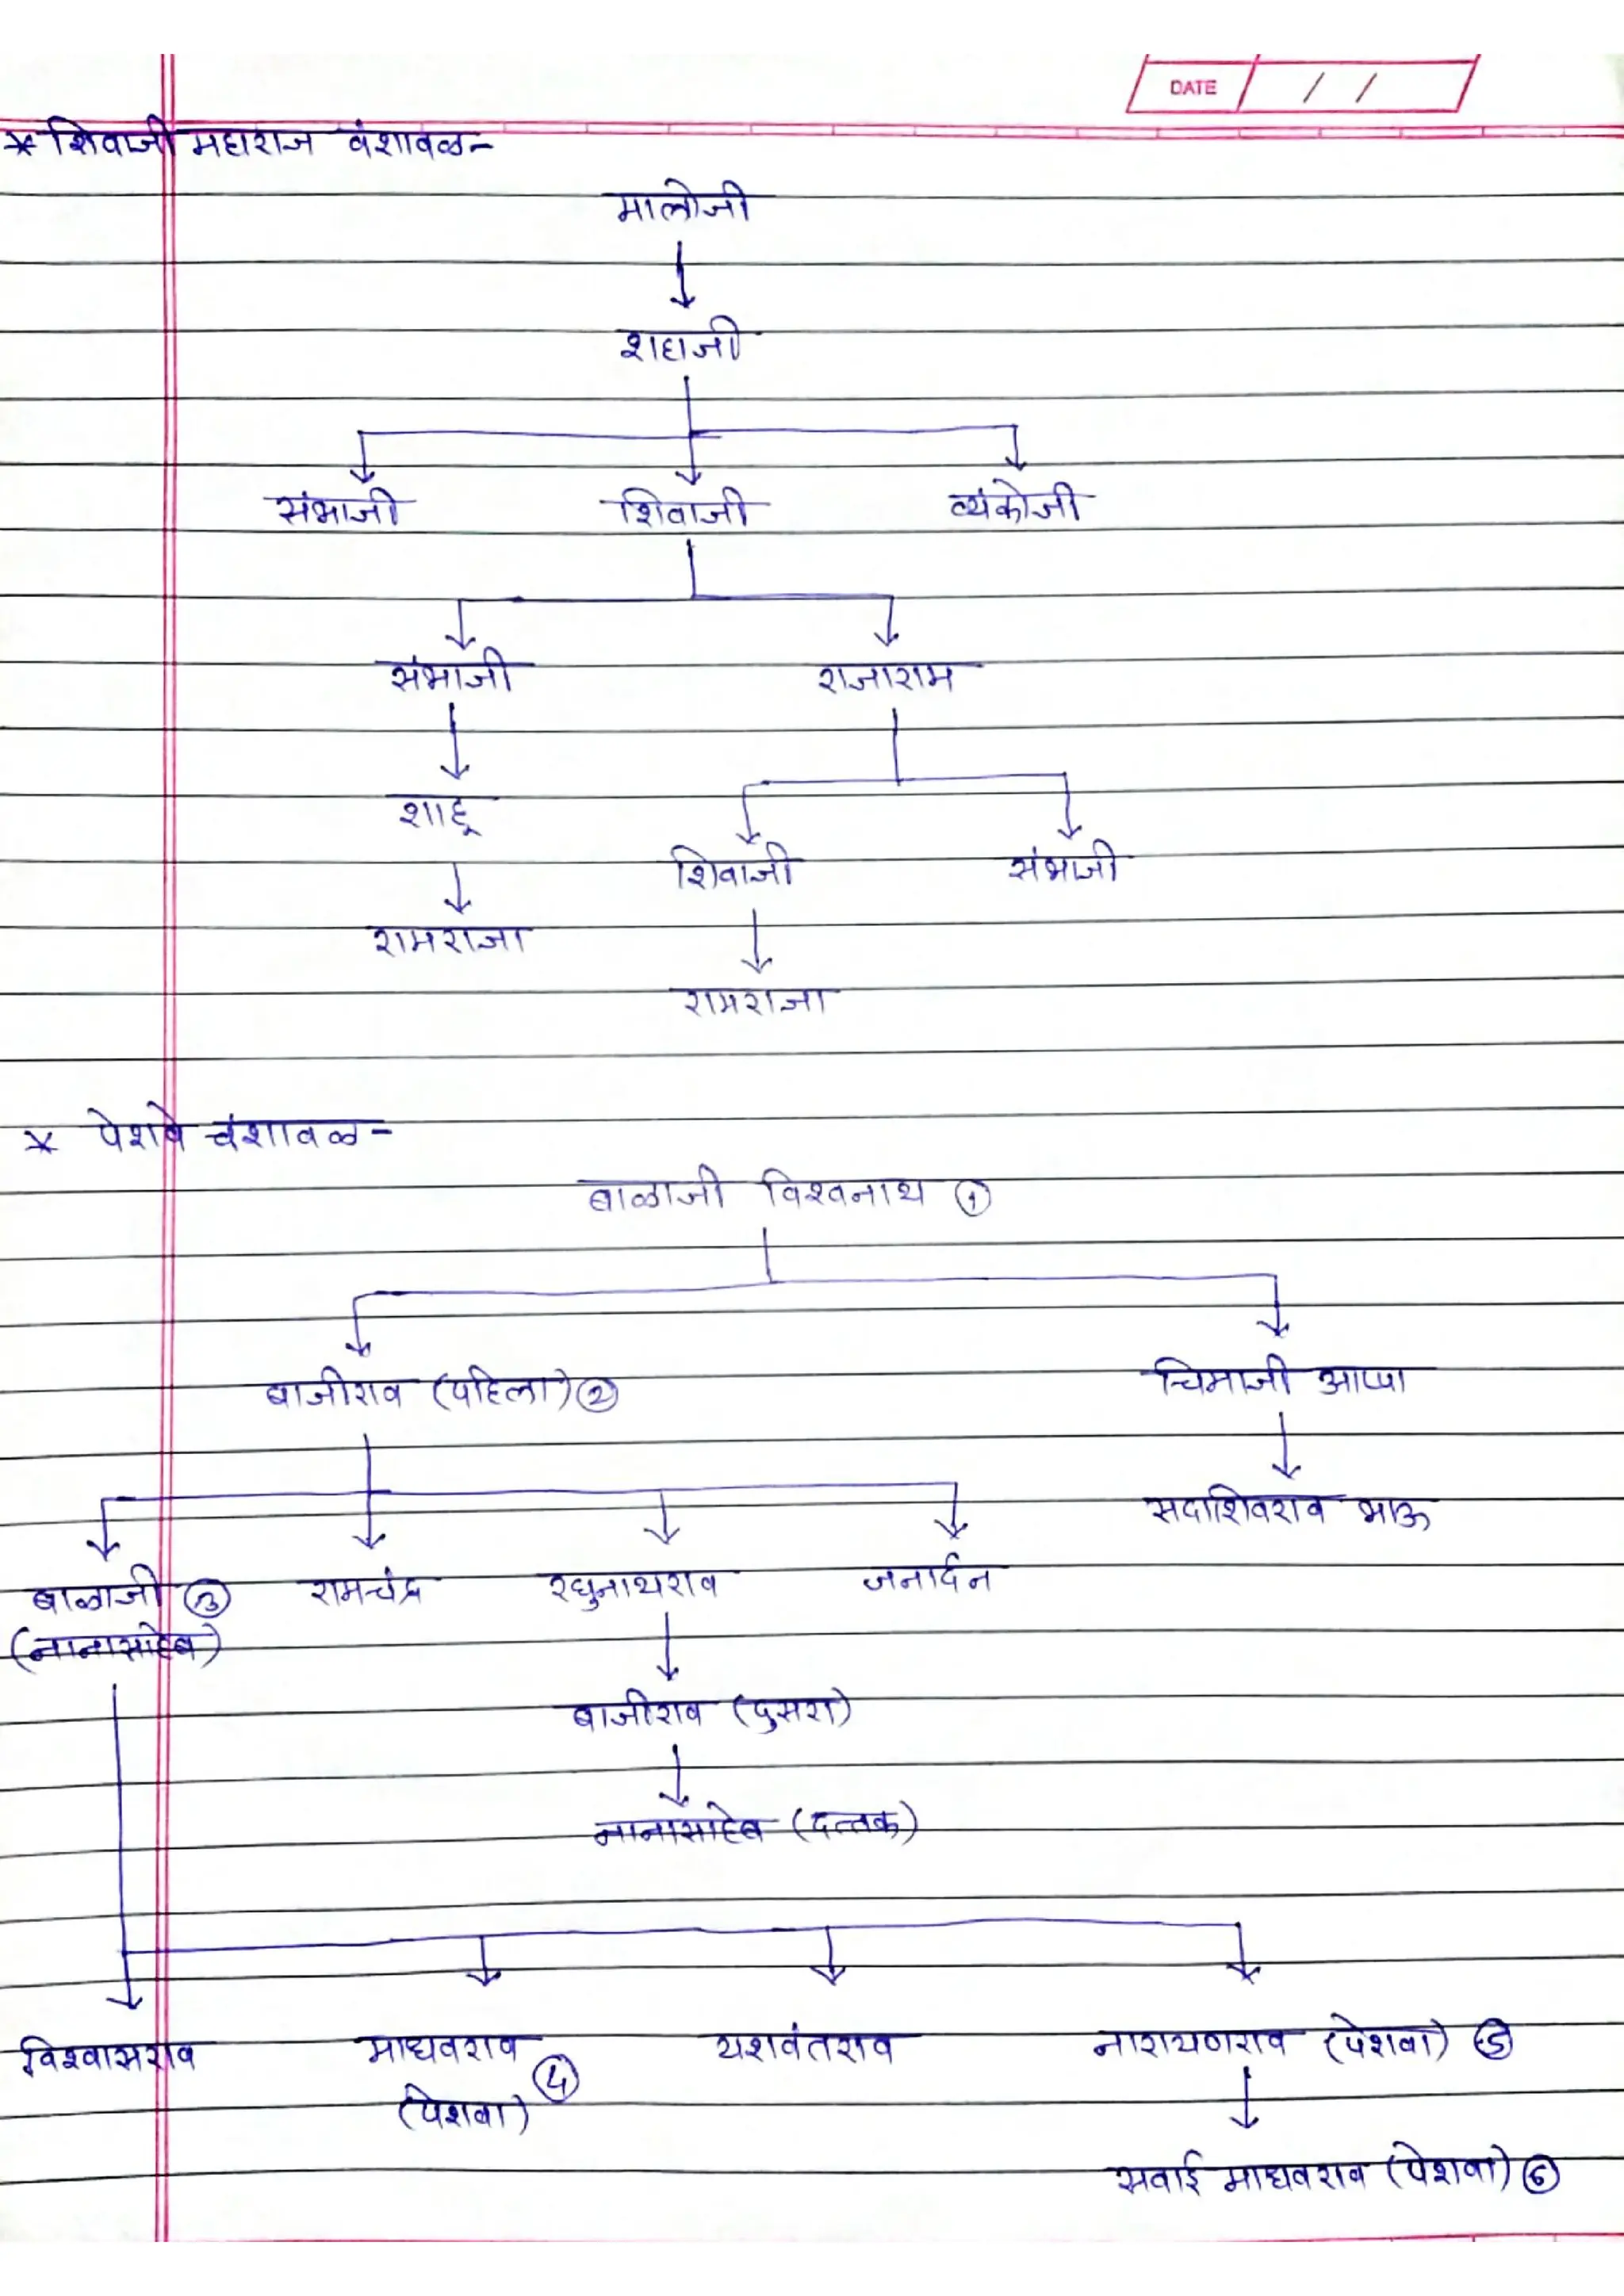 DATE / /
* शिवाजी महाराज वंशावळ-
मालोजी
शहाजी
संभाजी शिवाजी व्यंकोजी
संभाजी राजाराम
शाहू
शिवाजी संभाजी
रामराजा
रामराजा
* पेशवे वंशावळ-
बाळाजी विश्वनाथ ①
बाजीराव (पहिला) ② चिमाजी आप्पा
सदाशिवराव भाऊ
बाळाजी ③ रामचंद्र रघुनाथराव जनार्दन
(नानासाहेब)
बाजीराव (दुसरा)
नानासाहेब (दत्तक)
विश्वासराव माधवराव यशवंतराव नारायणराव (पेशवा) ⑤
(पेशवा) ④
सवाई माधवराव (पेशवा) ⑥